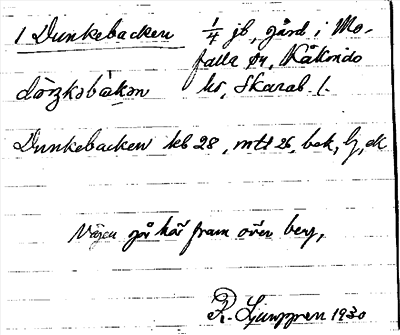 1 Dunkebacken 1/4 jb, gård i Mo-
falla sn, Kåkinds
hd, Skarab. l.
Dunkebacken kb 28, mtl 26, bek, lj, ek
Vägen går här fram över berg,
R. Ljunggren 1930